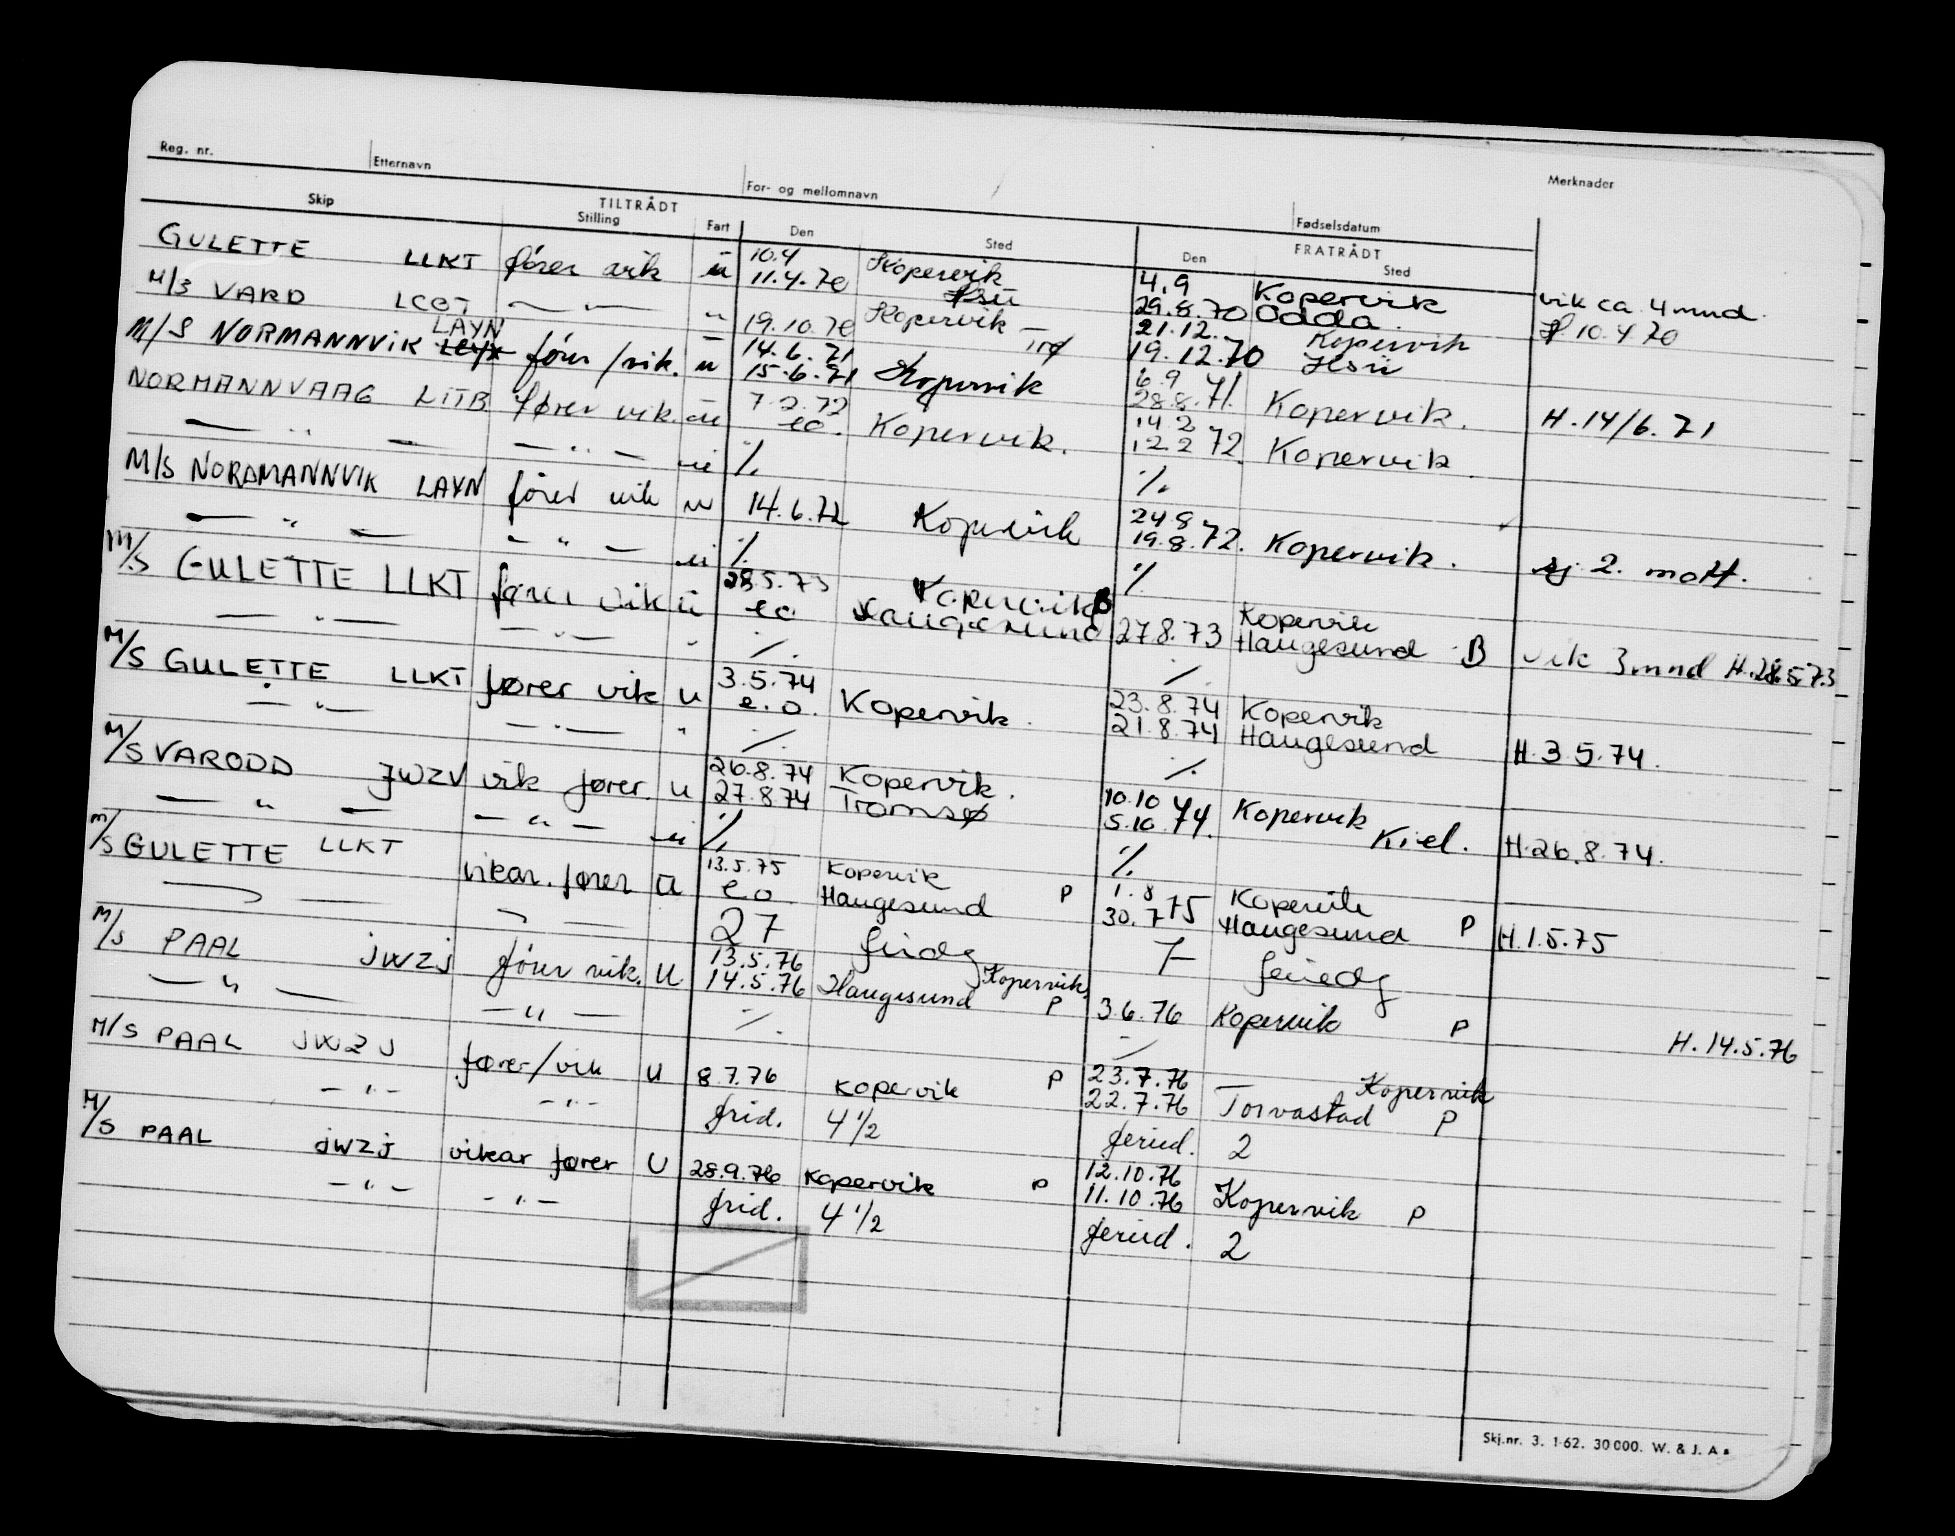 Reg. nr. Etternavn For- og mellomnavn Fødselsdatum Merknader
Skip TILTRÅDT Stilling Fart Den Sted FRATRÅDT Den Sted
GULETTE LLKT fører vik u 10.4 Kopervik 4.9 Kopervik vik ca 4 mnd.
11.4.70 29.8.70 Odda. 10.4.70
M/S VARD — " — " 19.10.70 Kopervik 21.12. Kopervik
19.12.70
M/S NORMANNVIK LAYN fører/vik. u 14.6.71 Kopervik 6.9 71. Kopervik. H.14/6.71
15.6.71 28.8.
NORMANNVAAG LITB fører vik. u 7.2.72 Kopervik. 14.2 72. Kopervik
eo. 12.2
— " — — " — u ./. ./.
M/S NORDMANNVIK LAYN fører vik u 14.6.72 Kopervik 24.8 72. Kopervik. 2. mott.
19.8.
— " — — " — u ./. ./.
M/S GULETTE LLKT fører vik u 28.5.73 Kopervik B 27.8.73 Kopervik vik 3 mnd H.28.5.73
eo Haugesund Haugesund B
— " — — " — " ./. ./.
M/S GULETTE LLKT fører vik u 3.5.74 Kopervik. 23.8.74 Kopervik H.3.5.74.
e.o. 21.8.74 Haugesund
— " — — " — " ./. ./.
M/S VARODD JWZV vik fører. u 26.8.74 Kopervik. 10.10 74. Kopervik H.26.8.74.
27.8.74 Tromsø 5.10 Kiel.
— " — — " — u ./. ./.
M/S GULETTE LLKT vikar. fører u 13.5.75 Kopervik P 1.8 75 Kopervik P H.1.5.75
eo. Haugesund 30.7 Haugesund
27 7
M/S PAAL JWZJ fører vik. u 13.5.76 Kopervik. P 3.6.76 Kopervik P H.14.5.76
14.5.76 Haugesund
— " — — " — ./. ./.
M/S PAAL JWZJ fører/vik u 8.7.76 Kopervik P 23.7.76 Kopervik
22.7.76 Torvastad P
— " — — " — frid. 4 1/2 feried. 2
M/S PAAL JWZJ vikar fører u 28.9.76 Kopervik P 12.10.76
11.10.76 Kopervik P
— " — — " — frid. 4 1/2 feried. 2
Skj.nr. 3. 1-62. 30000. W. & J. A s